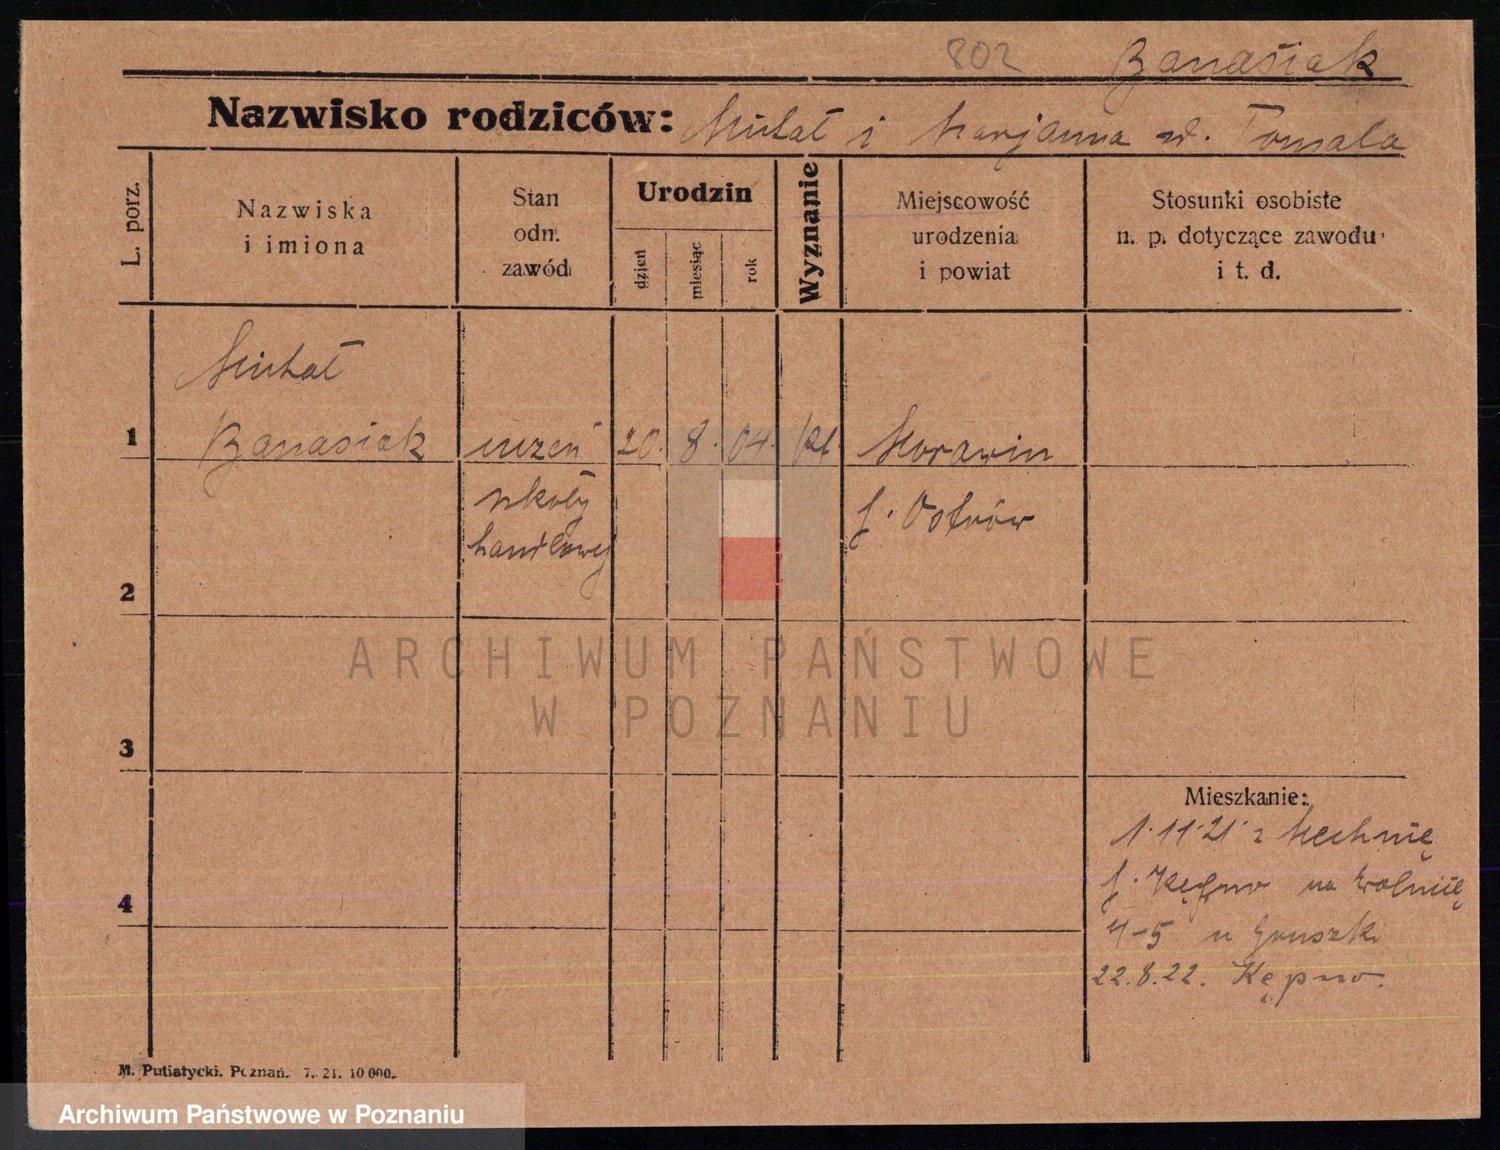 802 Banasiak
Nazwisko rodziców: Michał i Marjanna zd. Tomala
L. porz.
Nazwiska
i imiona
Stan
odn.
zawód
Urodzin
dzień
miesiąc
rok
Wyznanie
Miejscowość
urodzenia
i powiat
Stosunki osobiste
n. p. dotyczące zawodu
i t. d.
Michał
1 Banasiak uczeń 20. 8. 04. kt. Morawin
szkoły
handlowej
p. Ostrów
2
3
4
Mieszkanie:
1.11.21 z Mechnic
p. Kępno na
4-5 u Gruszki
22.8.22. Kępno.
M. Putiatycki. Poznań. 7. 21. 10 000.
ARCHIWUM PAŃSTWOWE
W POZNANIU
Archiwum Państwowe w Poznaniu